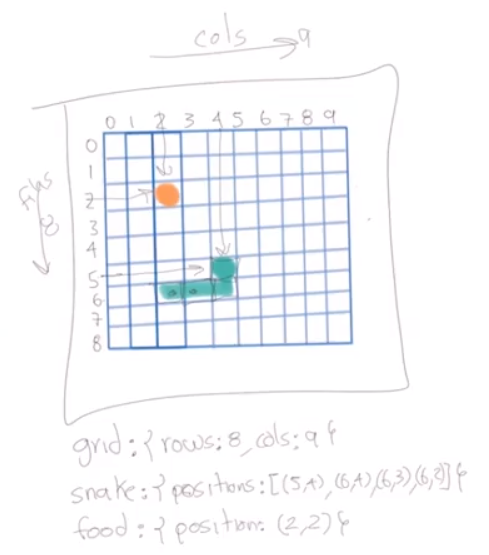 cols 9
0 1 2 3 4 5 6 7 8 9
0
1
2
3
4
5
6
7
8
filas
8
grid: { rows: 8, cols: 9 }
snake: { positions: [(5,4), (6,4), (6,3), (6,2)] }
food: { position: (2,2) }